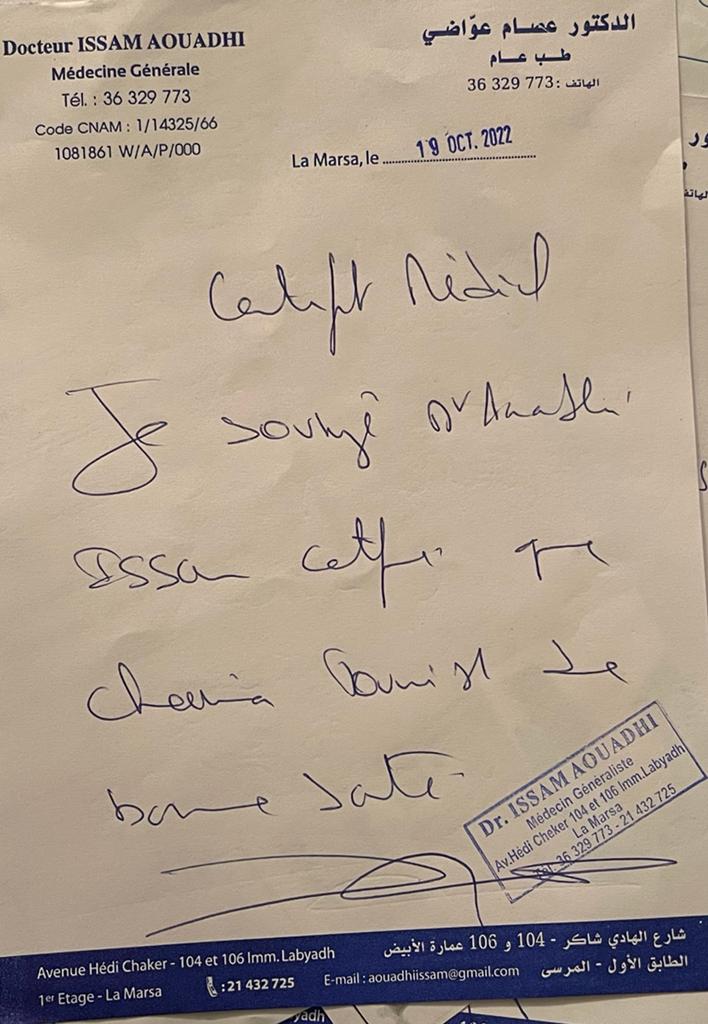 Docteur ISSAM AOUADHI
Médecine Générale
Tél. : 36 329 773
Code CNAM : 1/14325/66
1081861 W/A/P/000
الدكتور عصام عوّاضي
طب عام
الهاتف : 773 329 36
La Marsa, le 19 OCT. 2022
Certificat Médical
Je soussigné Dr Aouadhi
Issam certifie que
jouit de
bonne santé
Dr. ISSAM AOUADHI
Médecin Généraliste
Av.Hédi Cheker 104 et 106 Imm.Labyadh
La Marsa
Tél: 36 329 773 - 21 432 725
Avenue Hédi Chaker - 104 et 106 Imm. Labyadh
1er Etage - La Marsa
: 21 432 725
E-mail : aouadhiissam@gmail.com
شارع الهادي شاكر - 104 و 106 عمارة الأبيض
الطابق الأول - المرسى
yadh